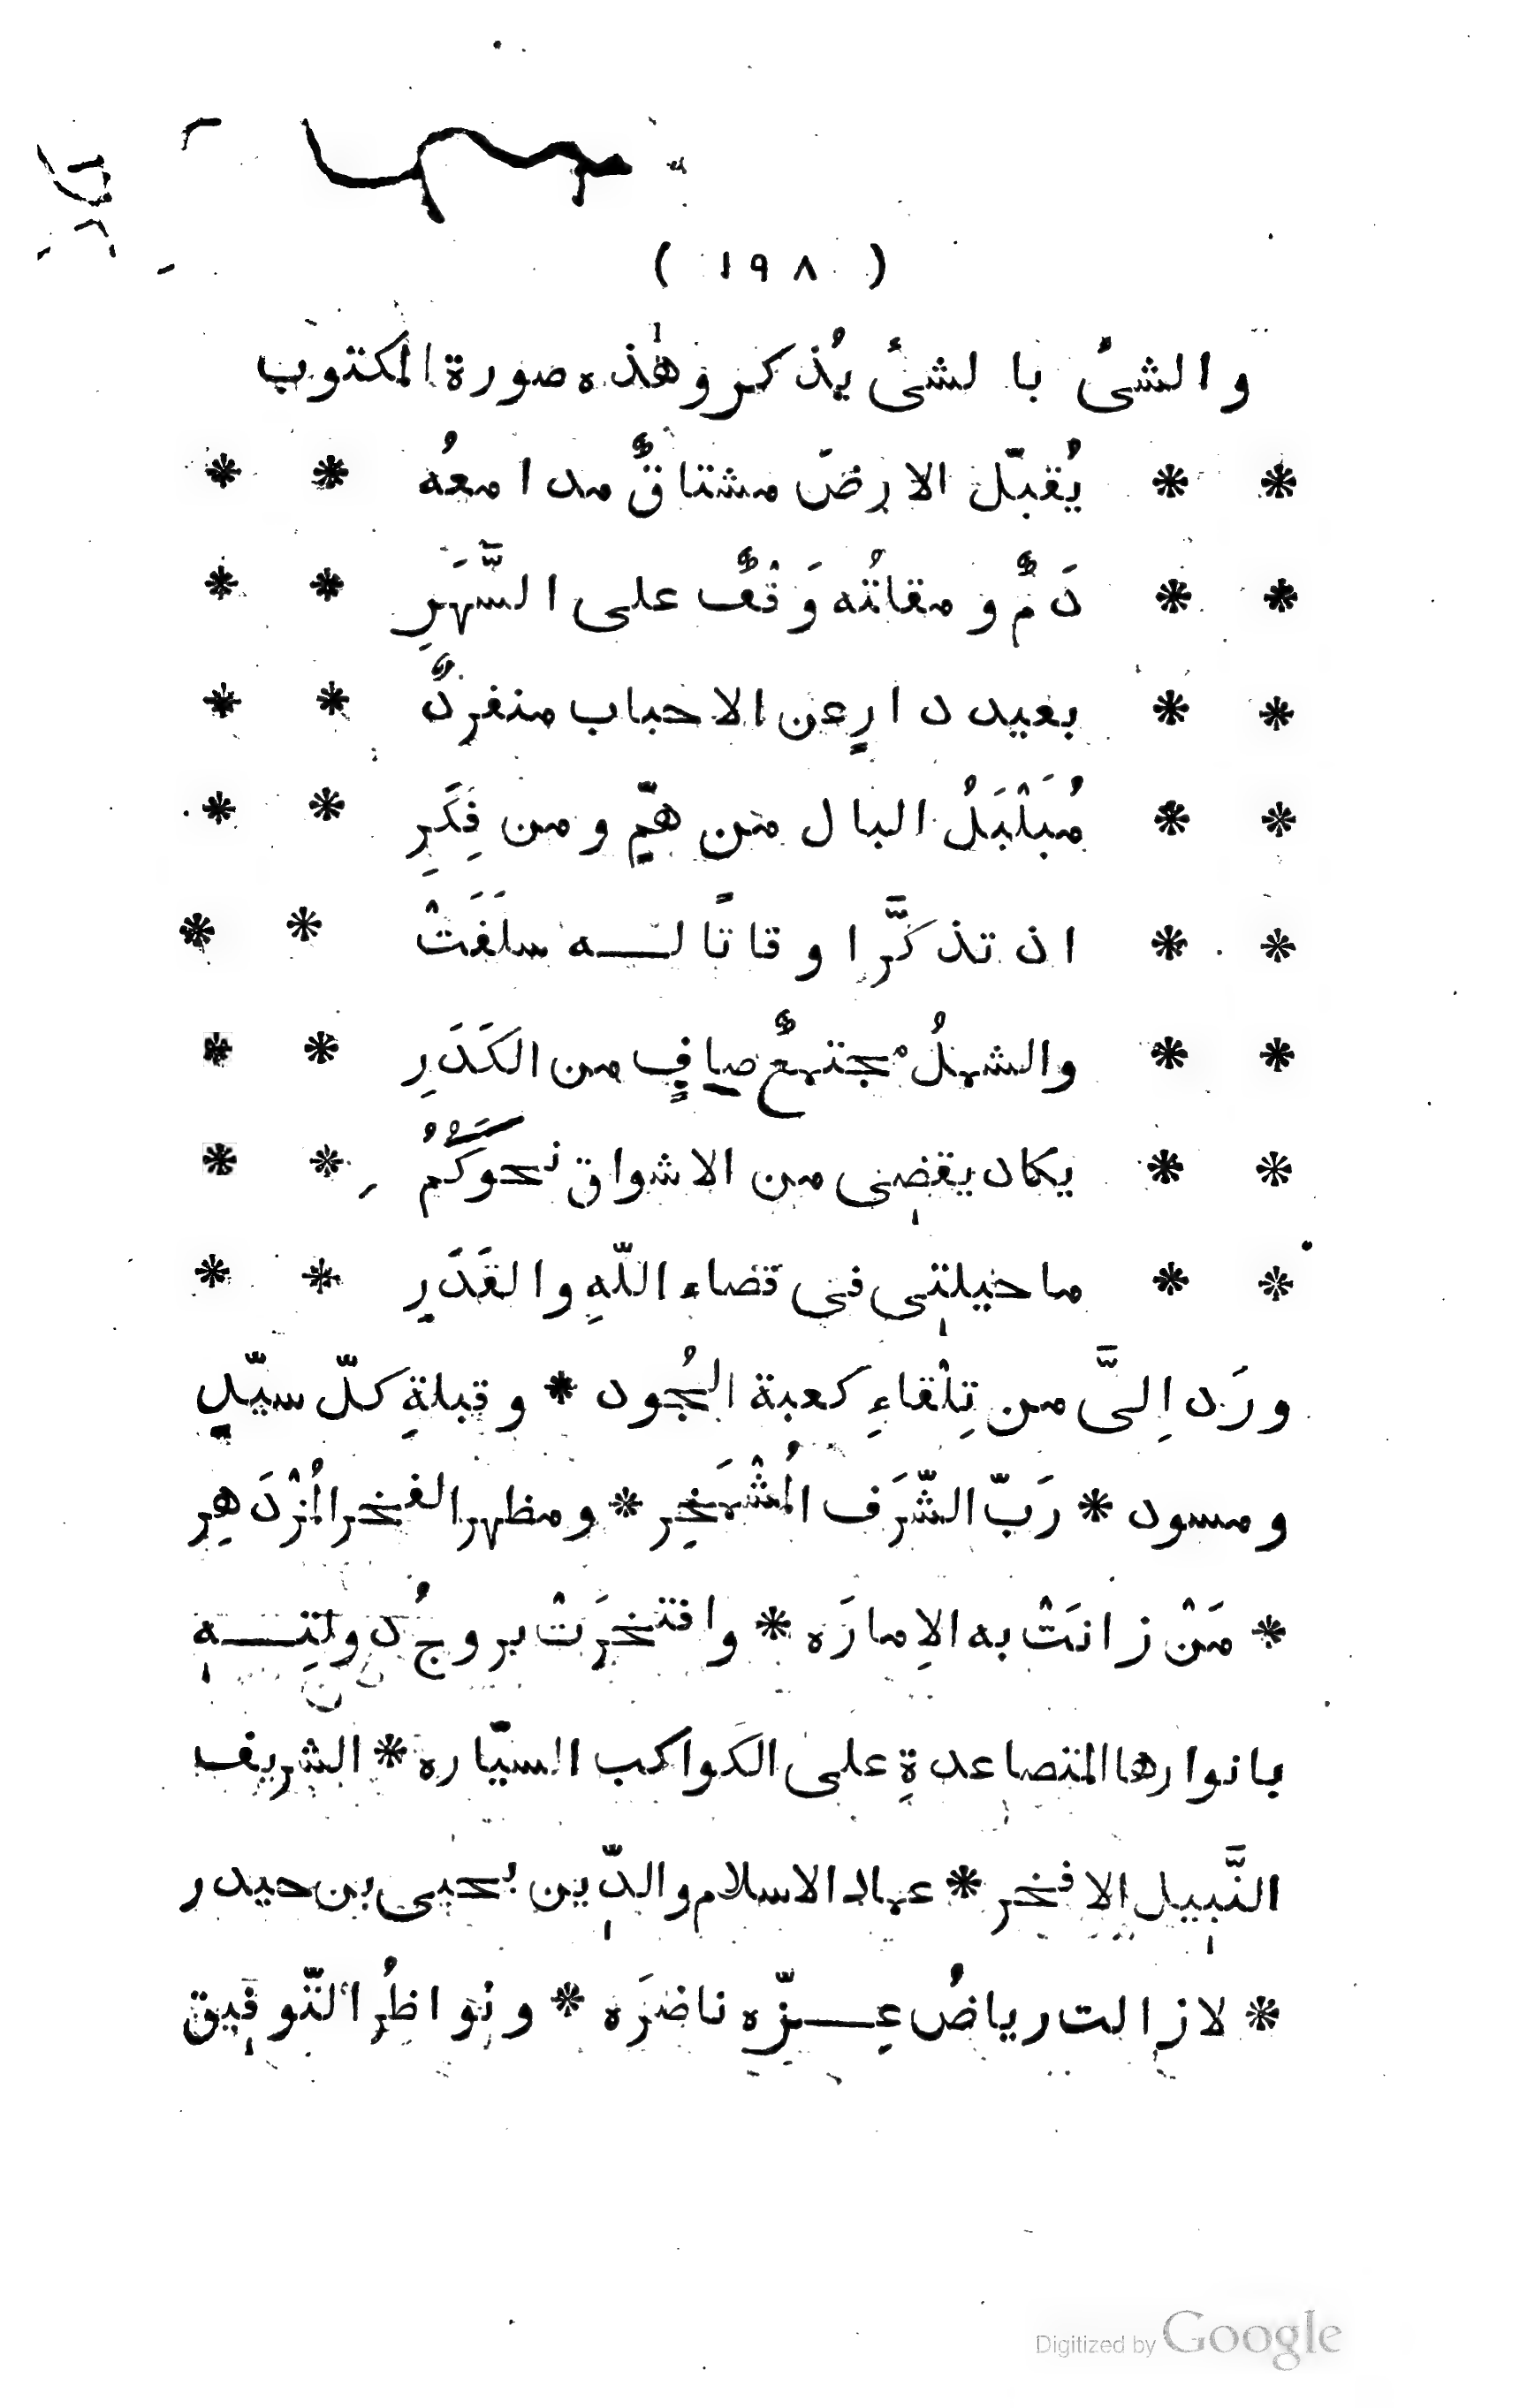 ( ١٩٨ )
والشئ بالشئ يُذكر وهٰذه صورة المكتوب
* * يُقبّل الارضَ مشتاقٌ مدامعُه * *
* * دَمٌ ومقلتُه وَقْفٌ على السَّهَرِ * *
* * بعيد دارٍ عن الاحباب منفردٌ * *
* * مُبَلْبَلُ البال من همٍّ ومن فِكَرِ * *
* * اذ تذكَّر اوقاتًا لــه سلفَتْ * *
* * والشملُ مجتمعٌ صافٍ من الكَدَرِ * *
* * يكاد يقضِى من الاشواق نحوَكُمُ * *
* * ما حيلتِى فى قضاء اللّهِ والقَدَرِ * *
ورَد اِلىَّ من تِلْقاءِ كعبة الجُود * وقبلةِ كلّ سيّدٍ
ومسود * رَبّ الشّرَف المُشْمَخِر * ومظهر الفخر المُزْدَهِر
* مَنْ زانَتْ به الاِمارَه * وافتخرَتْ بروجُ دولتِــهِ
بانوارها المتصاعدةِ على الكواكب السيّاره * الشريف
النَّبِيل الافخر * عماد الاسلام والدّين يحيى بن حيدر
* لازالت رياضُ عِــزّه ناضرَه * ونواظرُ التّوفِيق
Digitized by Google